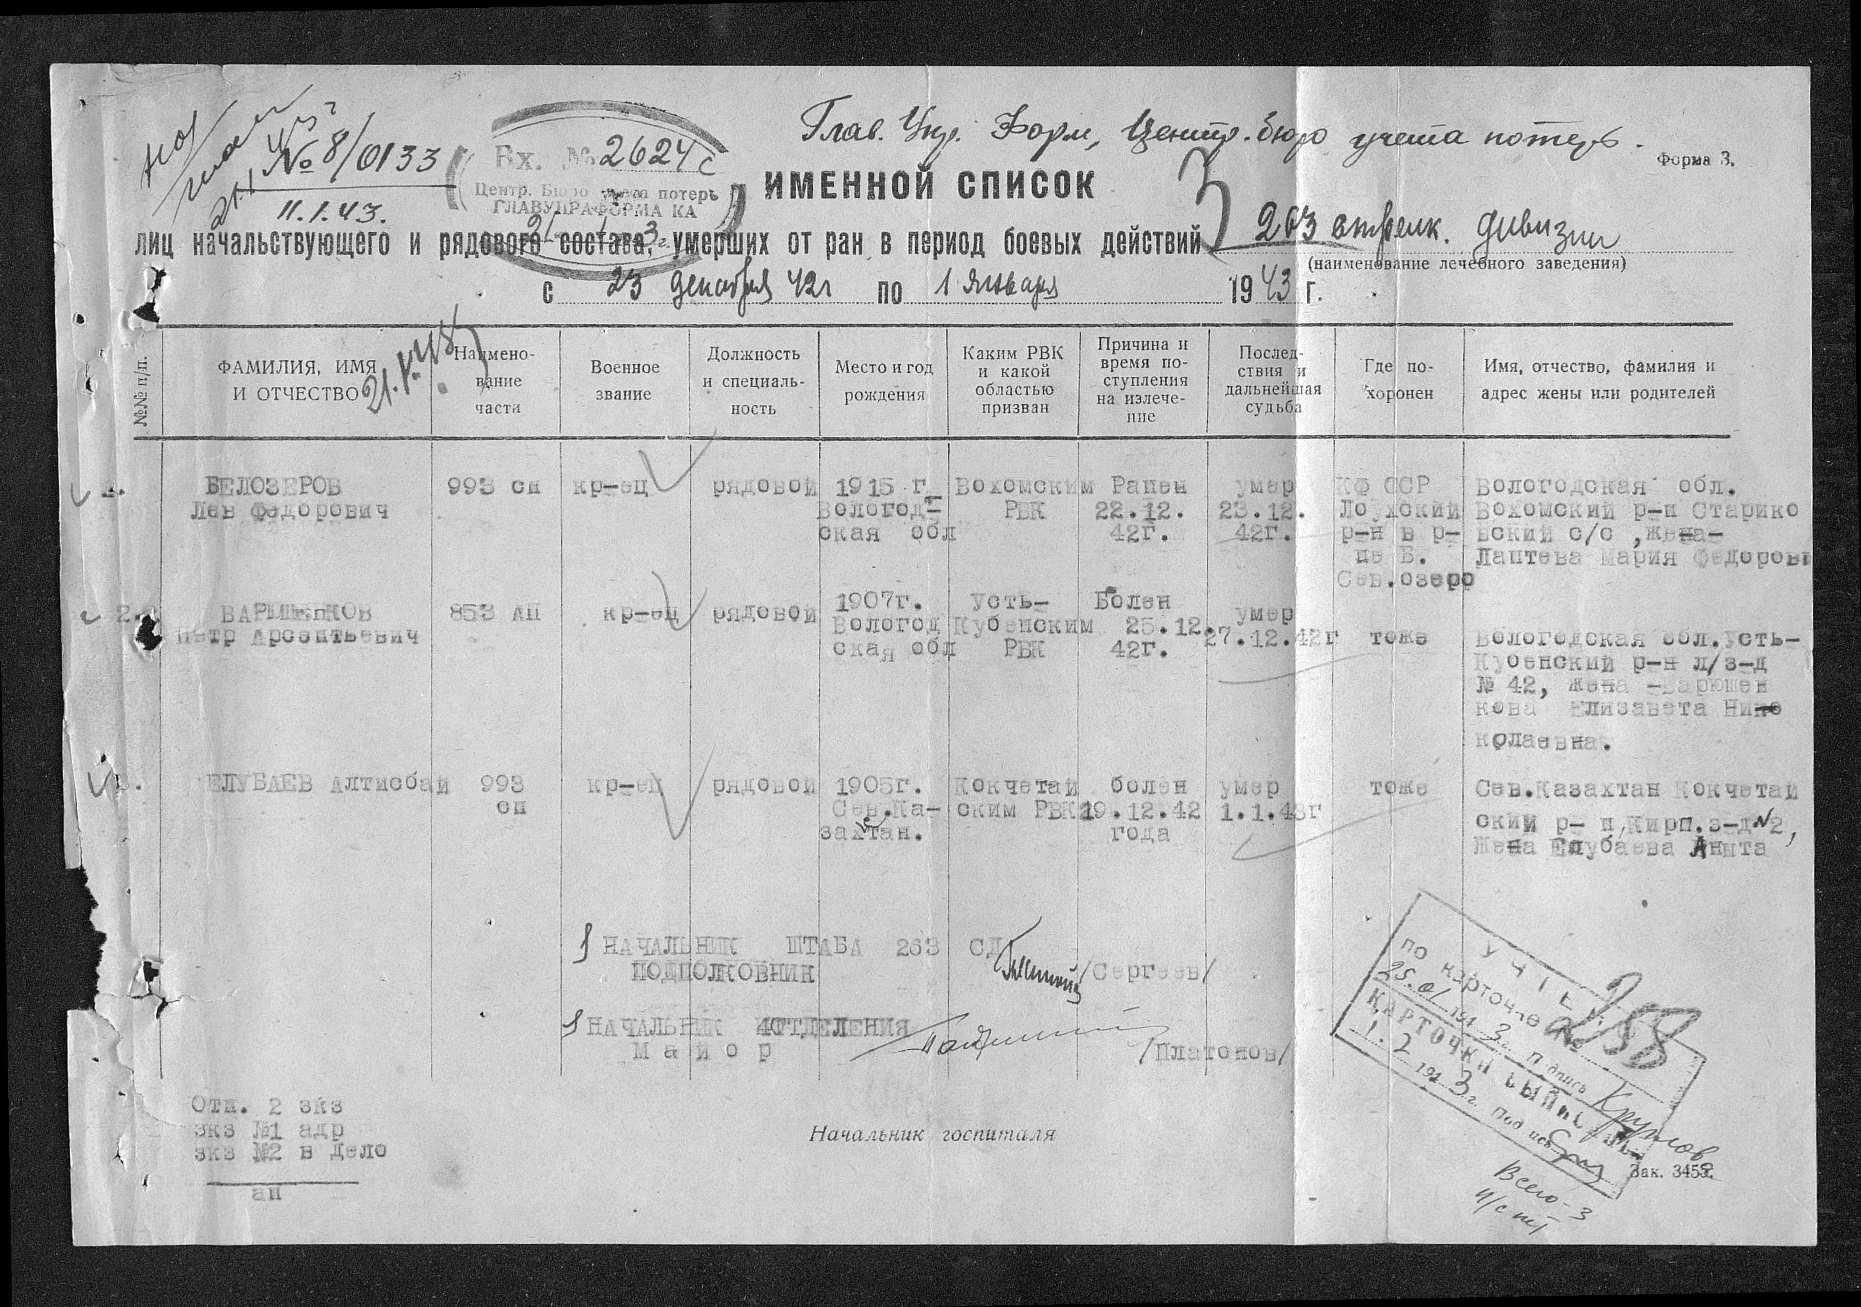 №8/0133
11.1.43.
Вх. № 2624с
Центр. Бюро учета потерь
ГЛАВУПРАФОРМА КА
Глав. Упр. Форм, Центр. бюро учета потерь.
Форма 3.
ИМЕННОЙ СПИСОК
лиц начальствующего и рядового состава, умерших от ран в период боевых действий 263 стрелк. дивизии
(наименование лечебного заведения)
с 23 декабря 42г по 1 января 1943 г.
№№ п/п.
ФАМИЛИЯ, ИМЯ
И ОТЧЕСТВО
Наимено-
вание
части
Военное
звание
Должность
и специаль-
ность
Место и год
рождения
Каким РВК
и какой
областью
призван
Причина и
время по-
ступления
на излече-
ние
Послед-
ствия и
дальнейшая
судьба
Где по-
хоронен
Имя, отчество, фамилия и
адрес жены или родителей
1.
БЕЛОЗЕРОВ
Лев Федорович
993 сп
кр-ец
рядовой
1915 г.
Вологод-
ская обл
Вохомским
РВК
Ранен
22.12.
42г.
умер
23.12.
42г.
КФ ССР
Лоухский
р-н в р-
не Б.
Сев.озеро
Вологодская обл.
Вохомский р-н Старико
вский с/с ,жена-
Лаптева Мария Федоровн
2.
ВАРЮШЕНКОВ
Петр Арсентьевич
853 АП
кр-ец
рядовой
1907г.
Вологод
ская обл
Усть-
Кубенским
РВК
Болен
25.12.
42г.
умер
27.12.42г
тоже
Вологодская обл.Усть-
Кубенский р-н л/з-д
№ 42, жена -Варюшен
кова Елизавета Нико
колаевна.
3.
ЕЛУБАЕВ Алтисбай
993
сп
кр-ец
рядовой
1905г.
Сев.Ка-
захтан.
Кокчетай
ским РВК
болен
19.12.42
года
умер
1.1.43г
тоже
Сев.Казахтан Кокчетай
ский р- н,Кирп.з-д№2,
Жена Елубаева Аныта
НАЧАЛЬНИК ШТАБА 263 СД
ПОДПОЛКОВНИК /Сергеев/
НАЧАЛЬНИК 4ОТДЕЛЕНИЯ
Майор /Платонов/
Отп. 2 экз
экз №1 адр
экз №2 в дело
ан
Начальник госпиталя
УЧТЕНО
по карточке №
25.01 1943 г. Подпись Круглов
КАРТОЧКИ
1.2 1943 г. Подпись
Зак. 3458.
Всего-3